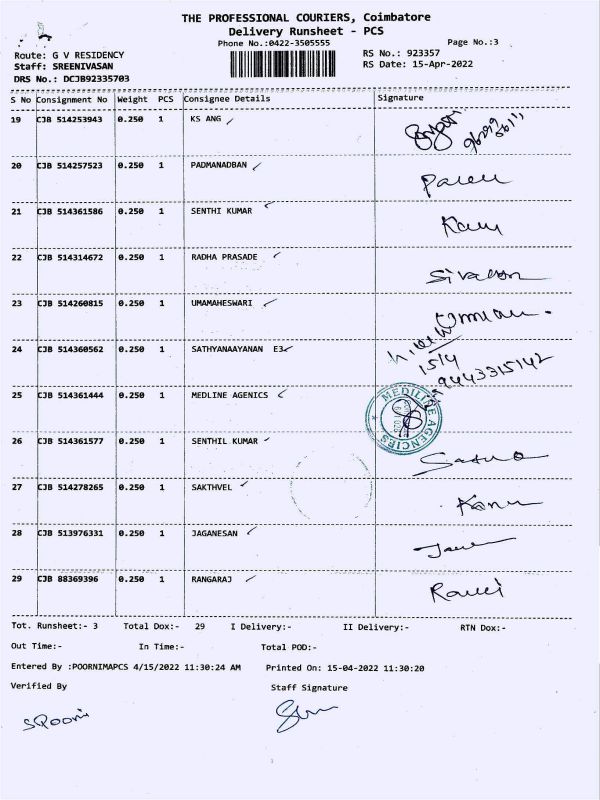 THE PROFESSIONAL COURIERS, Coimbatore
Delivery Runsheet - PCS
Phone No.:0422-3505555 Page No.:3
Route: G V RESIDENCY RS No.: 923357
Staff: SREENIVASAN RS Date: 15-Apr-2022
DRS No.: DCJB92335703
S No Consignment No Weight PCS Consignee Details Signature
19 CJB 514253943 0.250 1 KS ANG
20 CJB 514257523 0.250 1 PADMANADBAN
21 CJB 514361586 0.250 1 SENTHI KUMAR
22 CJB 514314672 0.250 1 RADHA PRASADE
23 CJB 514260815 0.250 1 UMAMAHESWARI
24 CJB 514360562 0.250 1 SATHYANAAYANAN E3
15/4
9443315142
25 CJB 514361444 0.250 1 MEDLINE AGENICS
MEDILINE AGENCIES
26 CJB 514361577 0.250 1 SENTHIL KUMAR
27 CJB 514278265 0.250 1 SAKTHVEL
28 CJB 513976331 0.250 1 JAGANESAN
29 CJB 88369396 0.250 1 RANGARAJ
Tot. Runsheet:- 3 Total Dox:- 29 I Delivery:- II Delivery:- RTN Dox:-
Out Time:- In Time:- Total POD:-
Entered By :POORNIMAPCS 4/15/2022 11:30:24 AM Printed On: 15-04-2022 11:30:20
Verified By Staff Signature